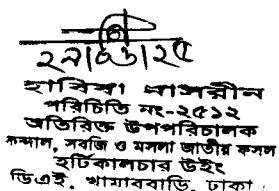 হাবিবা নাসরীন
পরিচিতি নং-২৫১২
অতিরিক্ত উপপরিচালক
কন্দাল, সবজি ও মসলা জাতীয় ফসল
হর্টিকালচার উইং
ডিএই, খামারবাড়ি, ঢাকা